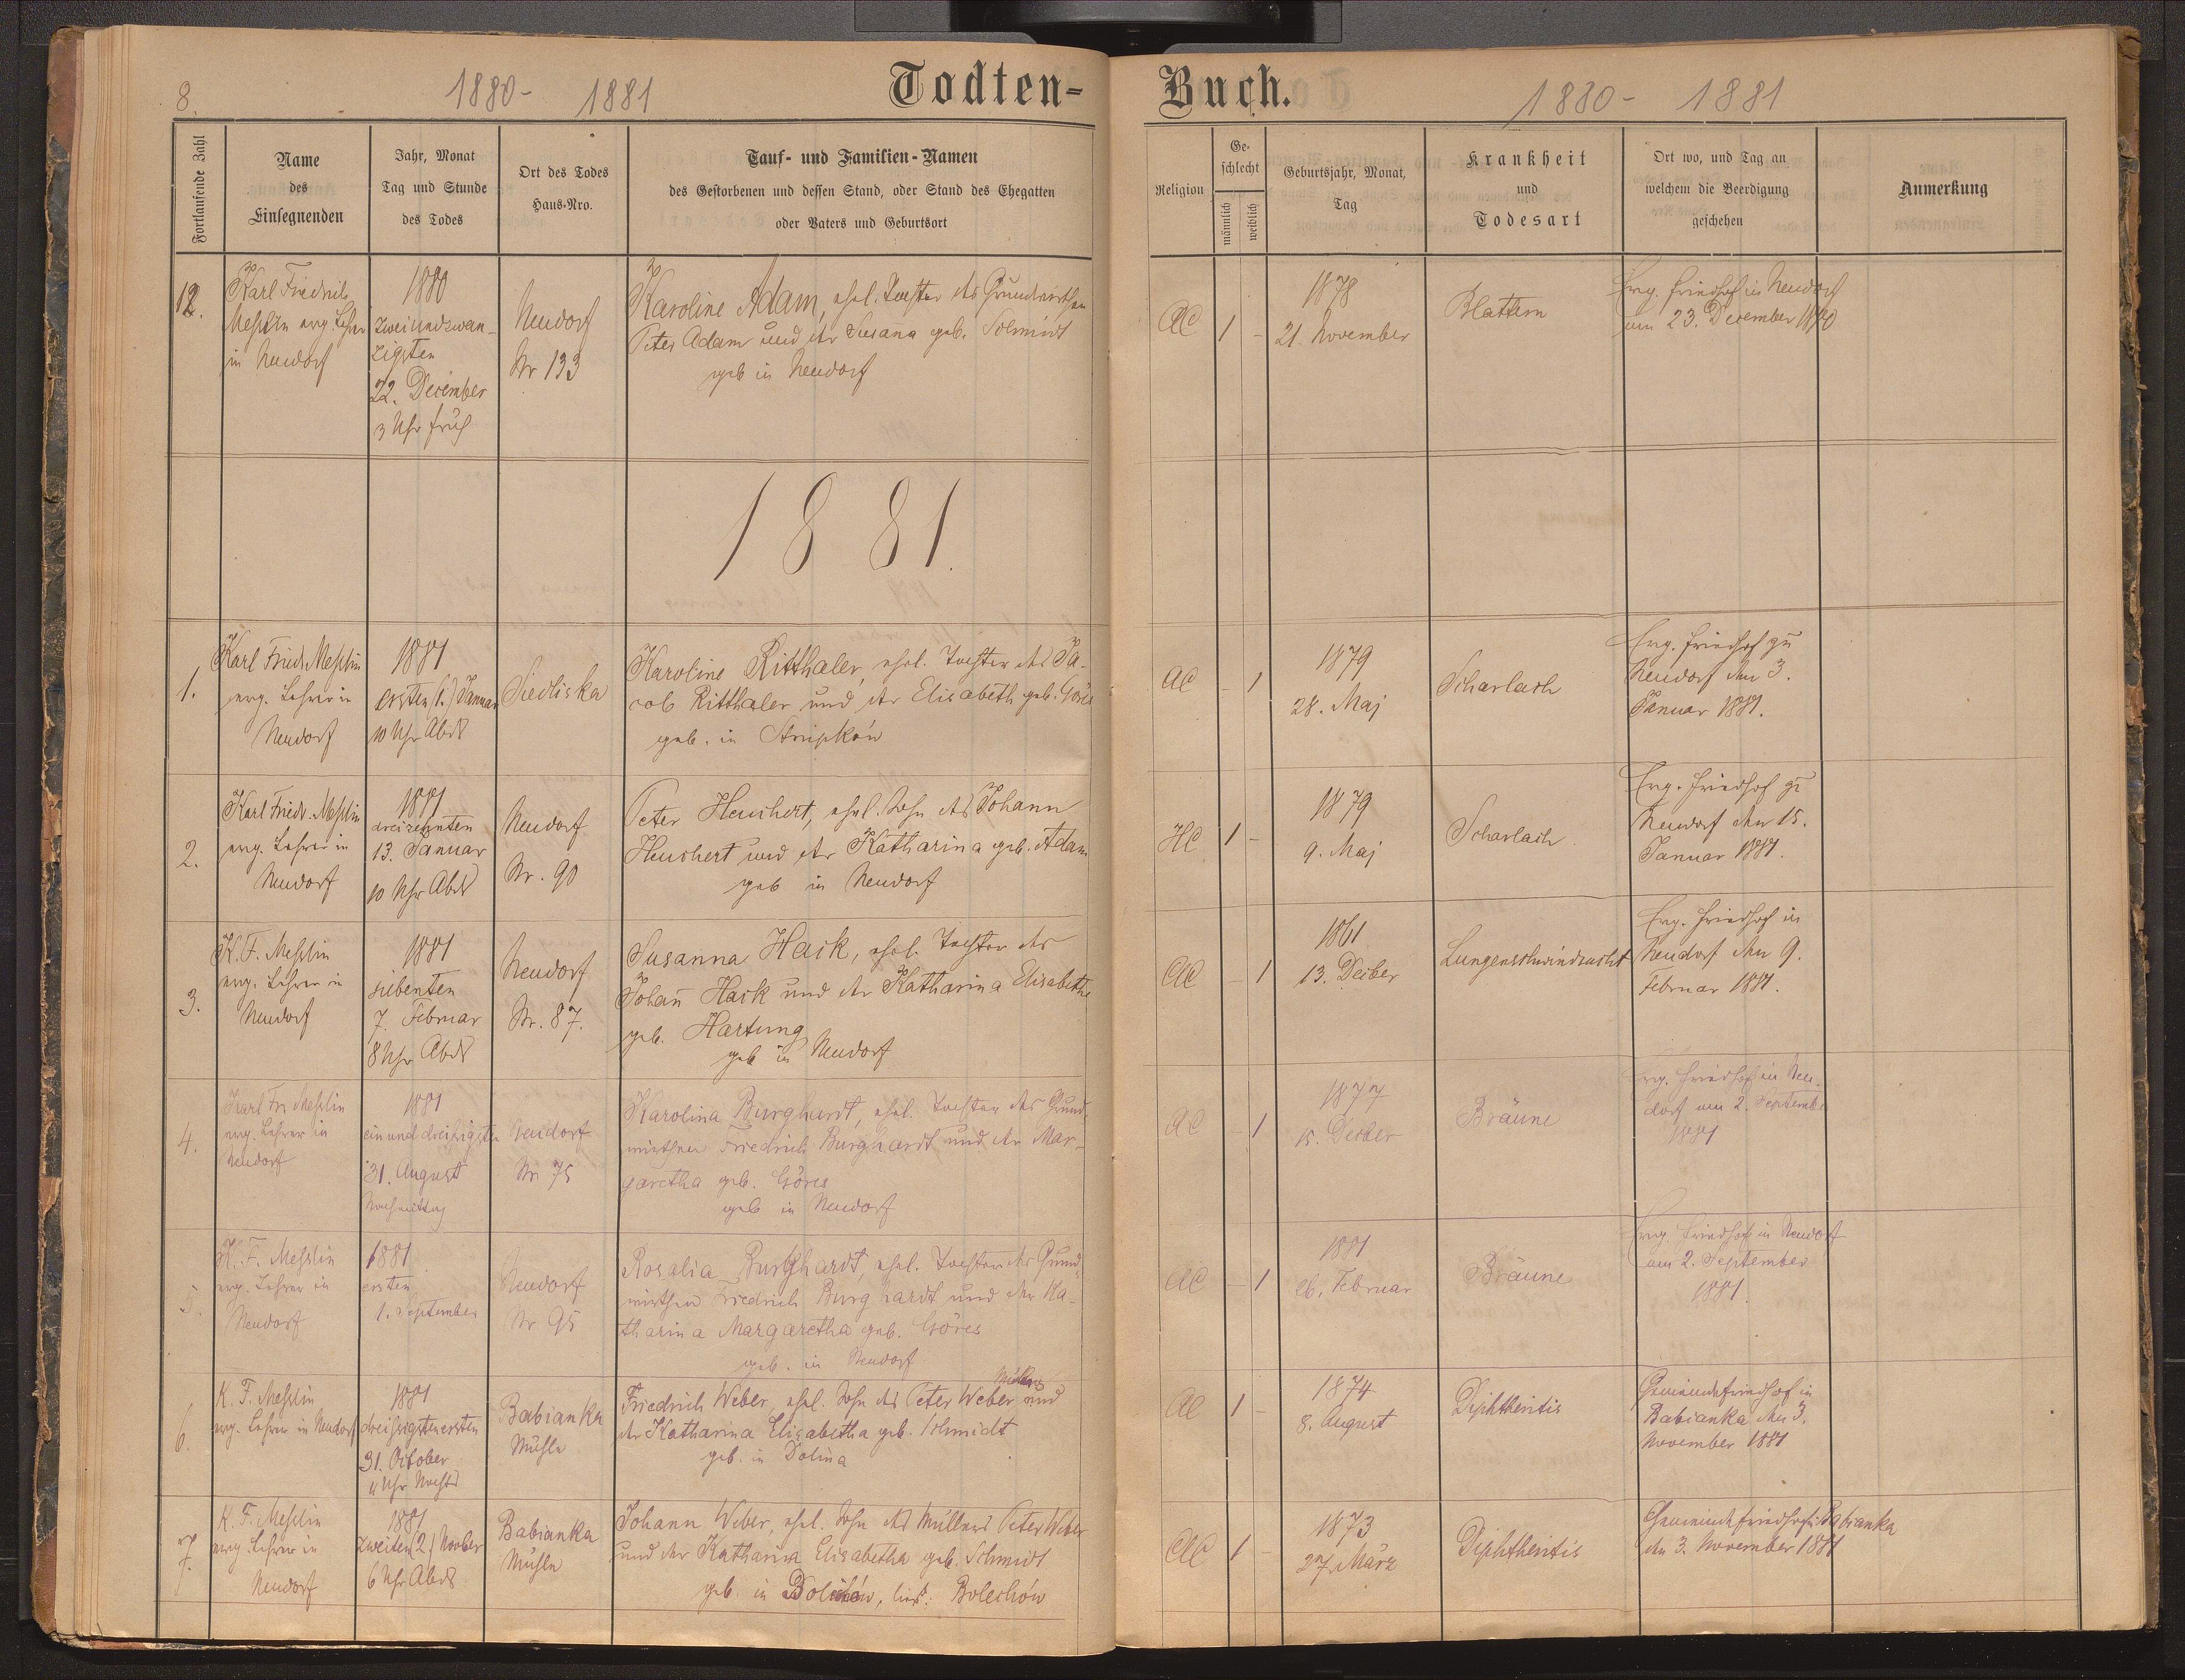 8.
1880- 1881
Todten-
Fortlaufende Zahl
Name
des
Einsegnenden
Jahr, Monat
Tag und Stunde
des Todes
Ort des Todes
Haus-Nro.
Tauf- und Familien-Namen
des Gestorbenen und dessen Stand, oder Stand des Ehegatten
oder Vaters und Geburtsort
12.
Karl Friedrich
evg. Lehrer
in Neudorf
1880
zweiundzwan-
zigsten
22. December
3 Uhr früh
Neudorf
Nr 133
Karoline Adam, ehel. Tochter des Grundwirthen
Peter Adam und der Susana geb. Schmidt
geb in Neudorf
1881.
1.
Karl Fried.
evg. Lehrer in
Neudorf
1881
ersten (1.) Januar
10 Uhr Abds
Siedliska
Karoline Ritthaler, ehel. Tochter des Ja-
cob Ritthaler und der Elisabeth geb. Göres
geb. in
2.
Karl Friedr.
evg. Lehrer in
Neudorf
1881
dreizehnten
13. Januar
10 Uhr Abds
Neudorf
Nr. 90
Peter Heuchert, ehel. Sohn des Johann
Heuchert und der Katharina geb. Adam
geb in Neudorf
3.
K. F.
evg. Lehrer in
Neudorf
1881
siebenten
7. Februar
8 Uhr Abds
Neudorf
Nr. 87.
Susanna Hack, ehel. Tochter des
Johañ Hack und der Katharina Elisabetha
geb. Hartung
geb in Neudorf
4.
Karl Fr.
evg. Lehrer in
Neudorf
1881
einunddreißigsten
31. August
Nachmittag
Neudorf
Nr. 75
Karolina Burghardt, ehel. Tochter des Grund-
wirthen Friedrich Burghardt und der Mar-
garetha geb. Göres
geb in Neudorf
5.
K. F.
evg. Lehrer in
Neudorf
1881
ersten
1. September
Neudorf
Nr 95
Rosalia Burghardt, ehel. Tochter des Grund-
wirthen Friedrich Burghardt und der Ka-
tharina Margaretha geb. Göres
geb. in Neudorf
6.
K. F.
evg. Lehrer in Neudorf
1881
dreißigstenersten
31. October
Uhr Nachts
Babianka
Mühle
Müllers
Friedrich Weber, ehel. Sohn des Peter Weber und
der Katharina Elisabetha geb. Schmidt
geb. in Dolina
7.
K. F.
evg. Lehrer in
Neudorf
1881
zweiten (2.) Novber
6 Uhr Abds
Babianka
Mühle
Johann Weber, ehel. Sohn des Müllers Peter Weber
und der Katharina Elisabetha geb. Schmidt
geb. in lies: Bolechów
Buch.
1880- 1881
Religion
Ge-
schlecht
männlich
weiblich
Geburtsjahr, Monat,
Tag
Krankheit
und
Todesart
Ort wo, und Tag an
welchem die Beerdigung
geschehen
Anmerkung
AC
1
-
1878
21. November
Blattern
Evg. Friedhof in Neudorf
am 23. December 1880
AC
-
1
1879
28. Maj
Scharlach
Evg. Friedhof zu
Neudorf den 3.
Januar 1881.
HC
1
-
1879
9. Maj
Scharlach
Evg. Friedhof zu
Neudorf den 15.
Januar 1881.
AC
-
1
1861
13. Decber
Lungenschwindsucht
Evg. Friedhof in
Neudorf den 9.
Februar 1881.
AC
-
1
1877
15. Decber
Bräune
Evg. Friedhof in Neu-
dorf am 2. September
1881
AC
-
1
1881
26. Februar
Bräune
Evg. Friedhof in Neudorf
am 2. September
1881.
AC
1
-
1874
8. August
Diphtheritis
Gemeindefriedhof in
Babianka den 3.
November 1881
AC
1
-
1873
27. März
Diphtheritis
Gemeindefriedhof in Babianka
den 3. November 1881